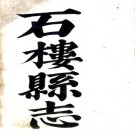 石樓縣志